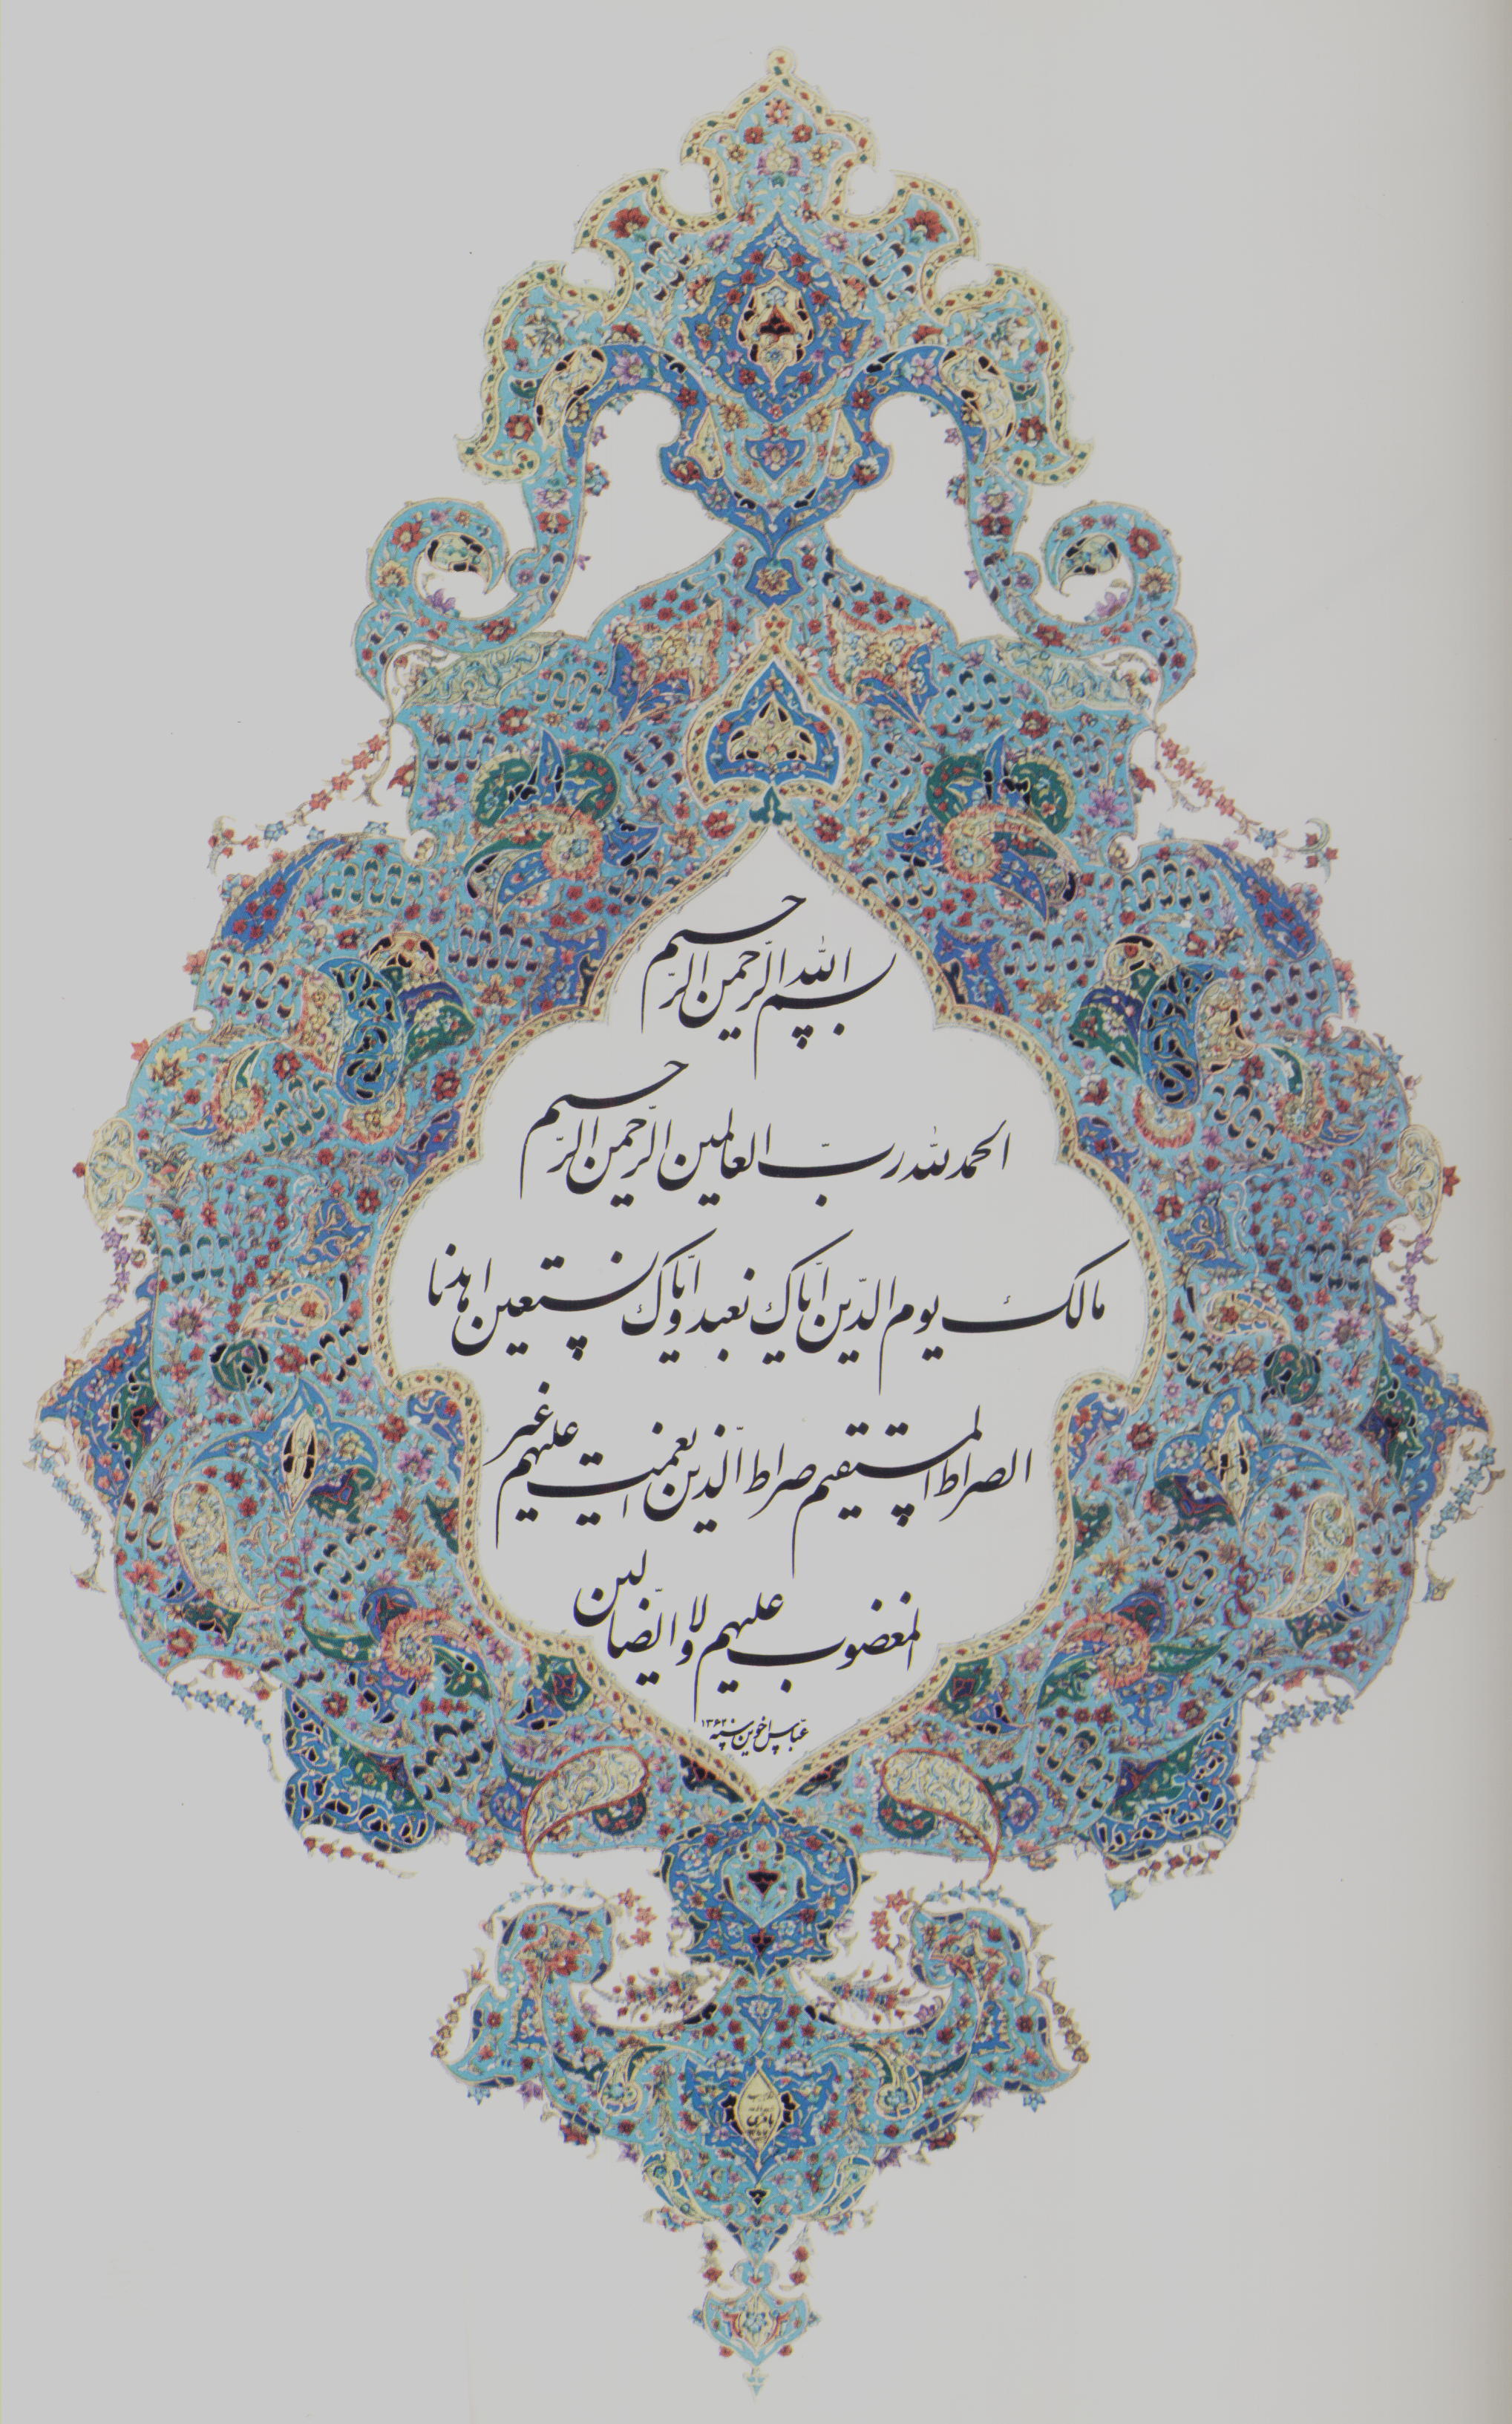 بسم الله الرّحمن الرّحیم
الحمد لله ربّ العالمین الرّحمن الرّحیم
مالک یوم الدّین ایّاک نعبد و ایّاک نستعین اهدنا
الصراط المستقیم صراط الّذین انعمت علیهم غیر
المغضوب علیهم ولا الضّالین
عبّاس اخوین ۱۳۶۲